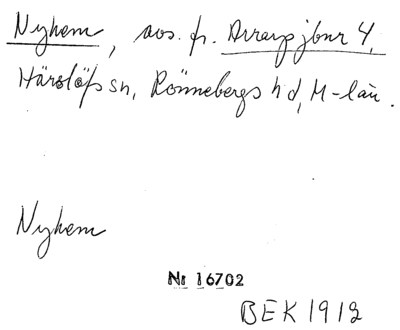 Nyhem, avs. fr. Arrarp jbnr 4,
Härslöfs sn, Rönnebergs hd, M-län.
Nyhem
Nr 16702
BEK 1912